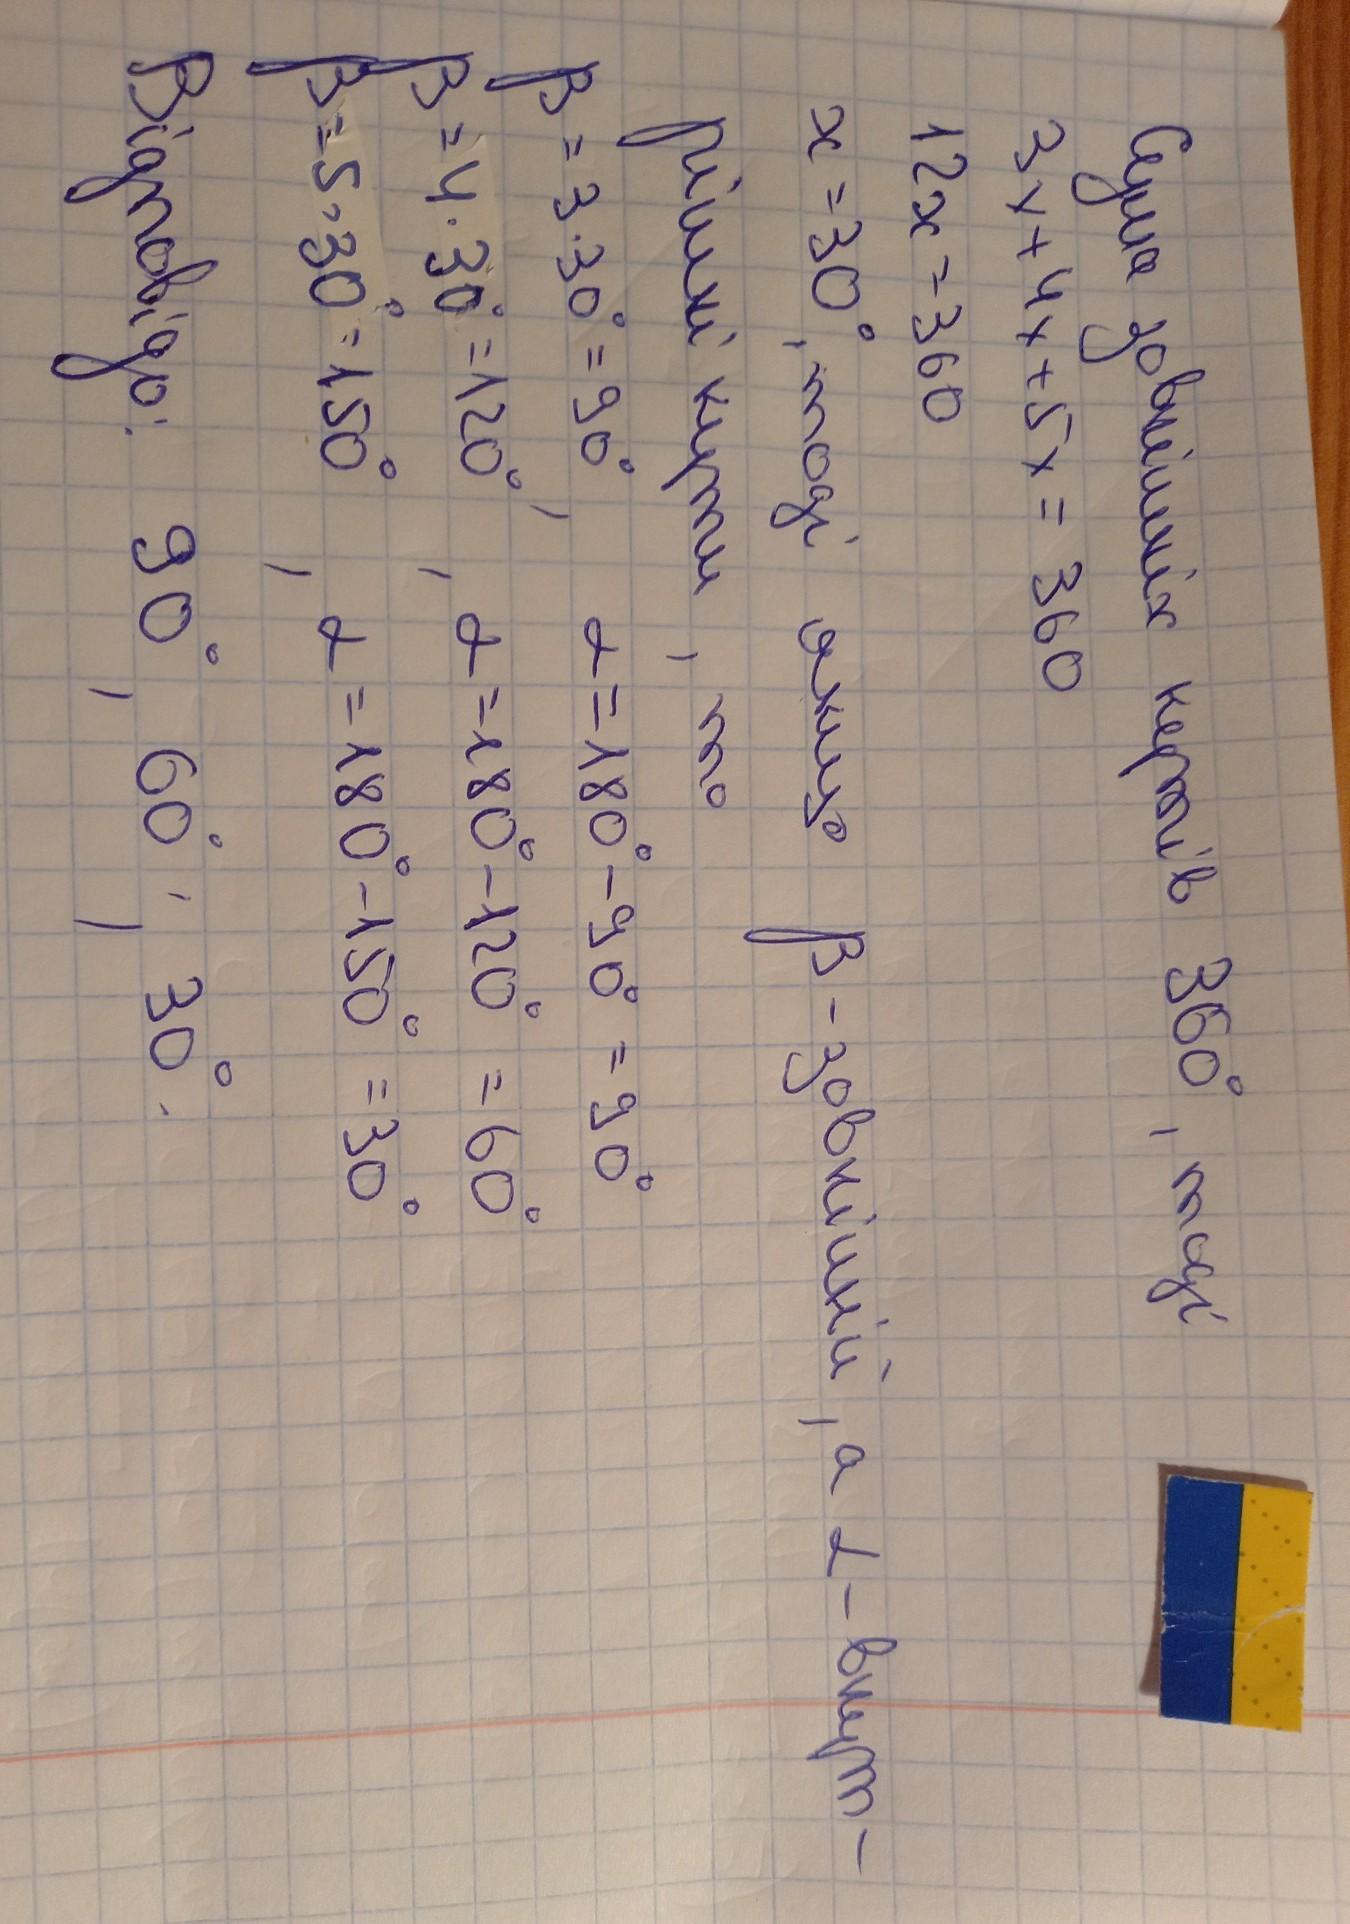 Сума зовнішніх кутів 360°, тоді
3x+4x+5x=360
12x=360
x=30°, тоді якщо β-зовнішній, а α-внут-
рішні кути, то
β=3·30°=90°, α=180°-90°=90°
β=4·30°=120°, α=180°-120°=60°
β=5·30°=150°, α=180°-150°=30°
Відповідь: 90°, 60°, 30°.